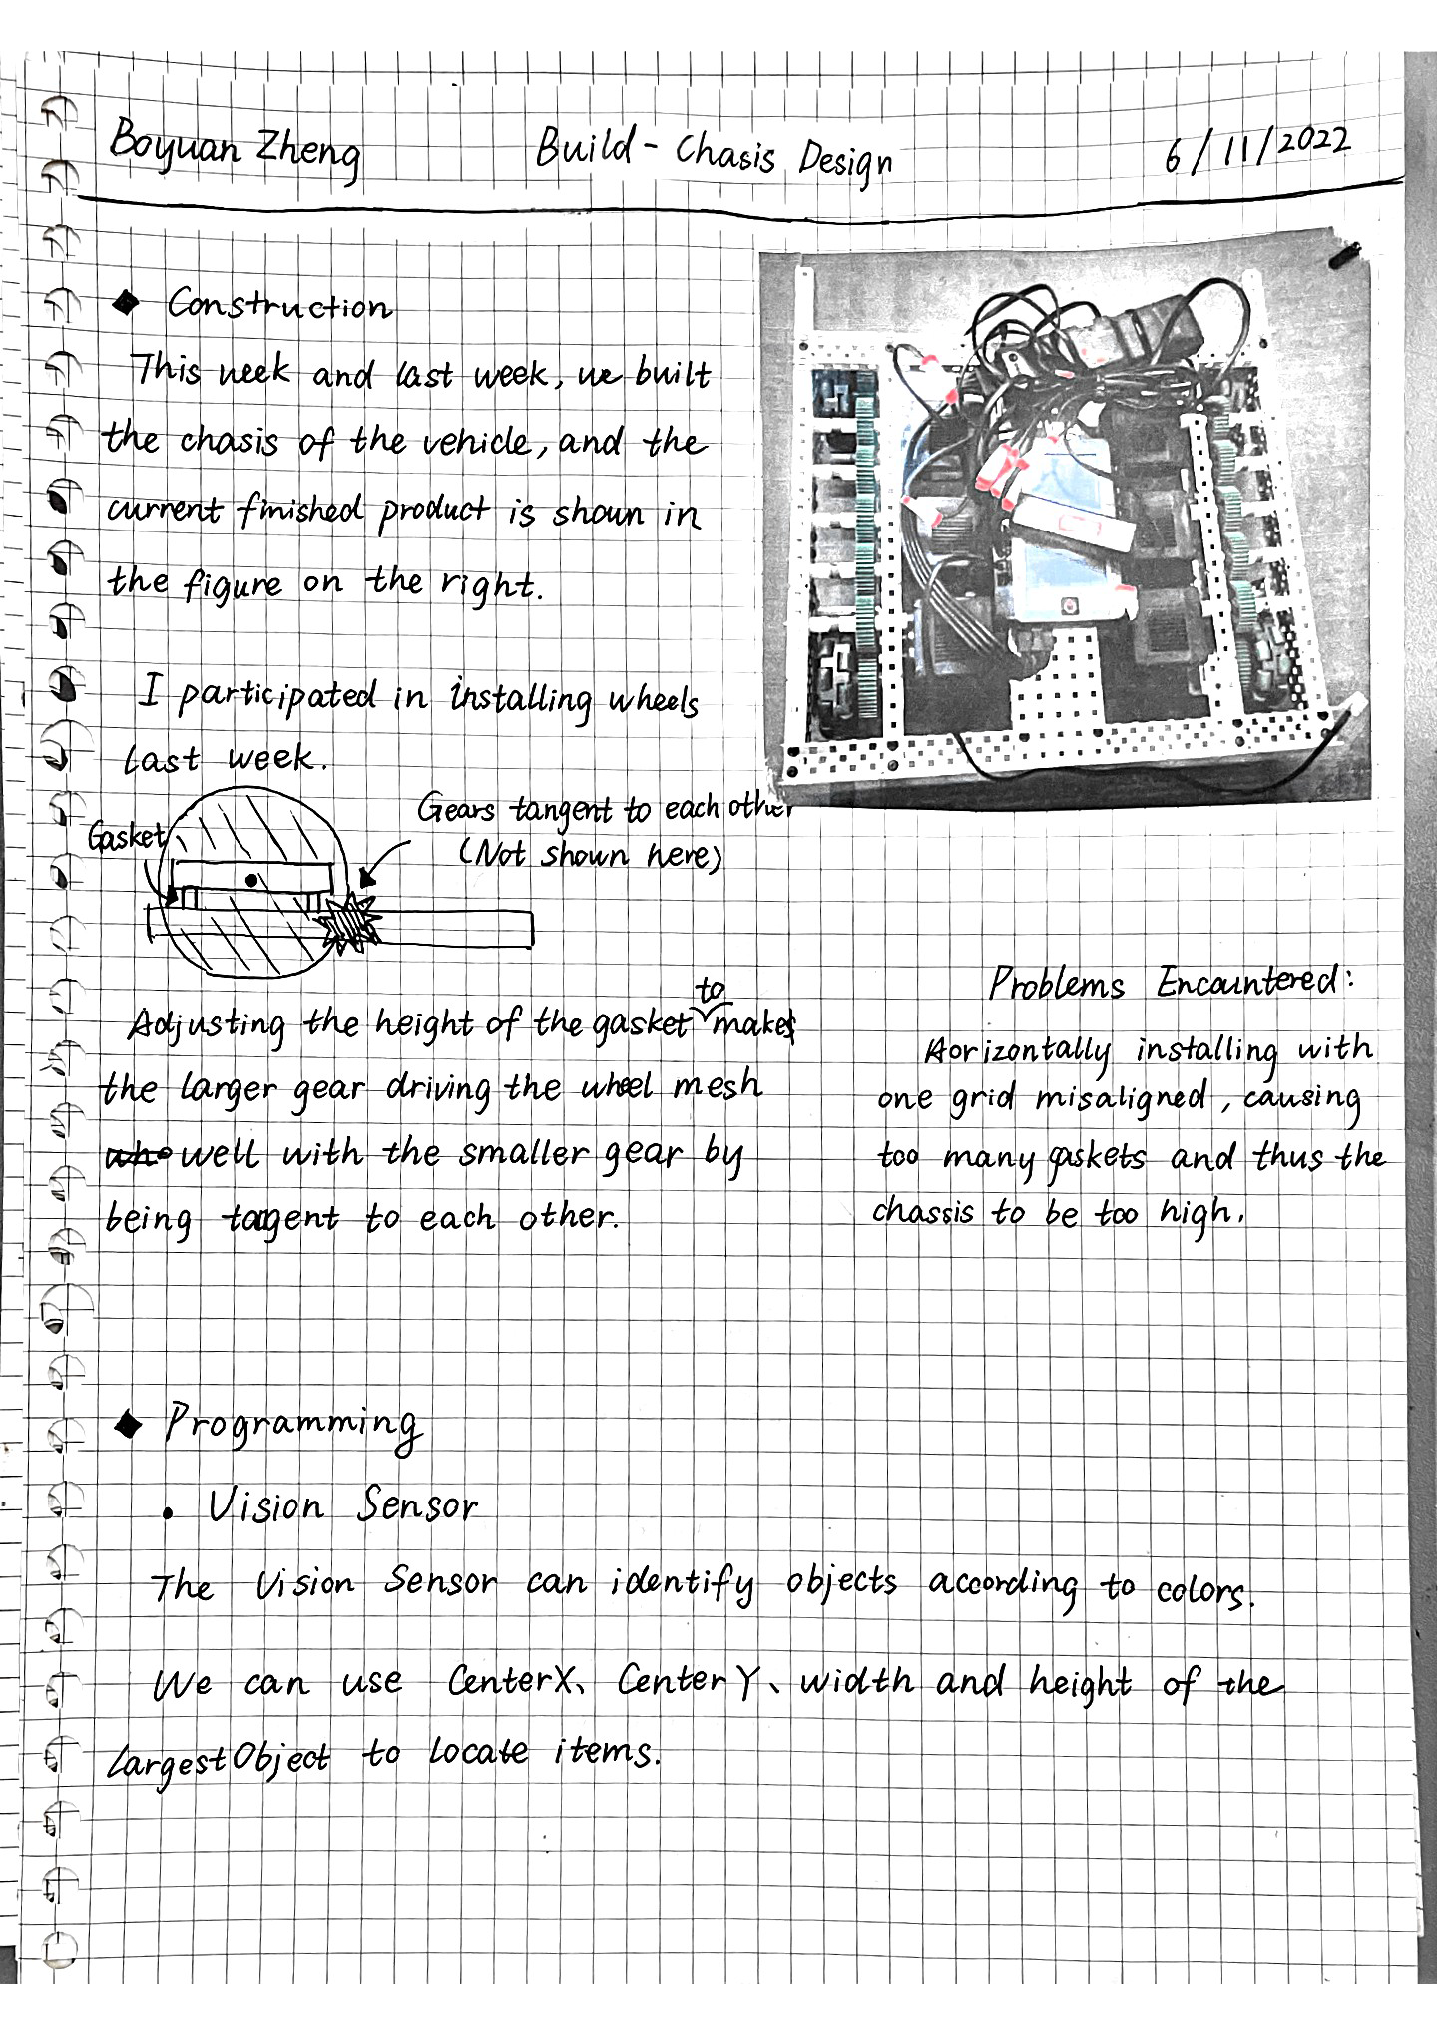 Boyuan Zheng Build - Chasis Design 6/11/2022
◆ Construction
This week and last week, we built
the chasis of the vehicle, and the
current finished product is shown in
the figure on the right.
I participated in installing wheels
last week.
Gasket
Gears tangent to each other
(Not shown here)
to
Adjusting the height of the gasket makes
the larger gear driving the wheel mesh
well with the smaller gear by
being tangent to each other.
Problems Encountered:
Horizontally installing with
one grid misaligned, causing
too many gaskets and thus the
chassis to be too high.
◆ Programming
• Vision Sensor
The Vision Sensor can identify objects according to colors.
We can use CenterX、CenterY、width and height of the
LargestObject to locate items.